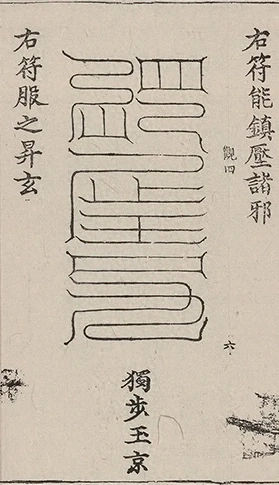 右符能鎮壓諸邪
觀四
六
獨步玉京
右符服之昇玄